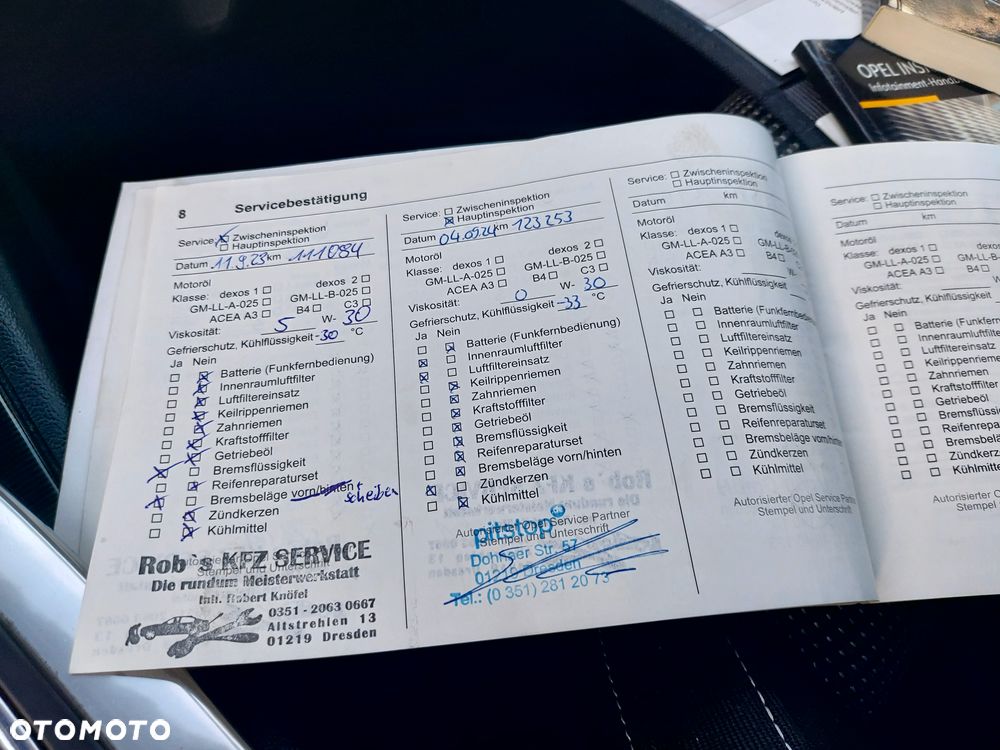 OPEL INS
Infotainment-Handb
8 Servicebestätigung
Service: ☒ Zwischeninspektion
☐ Hauptinspektion
Datum 11.9.23 km 111084
Motoröl
Klasse: dexos 1 ☐ dexos 2 ☐
GM-LL-A-025 ☐ GM-LL-B-025 ☐
ACEA A3 ☐ B4 ☐ C3 ☐
Viskosität: 5 W- 30
Gefrierschutz, Kühlflüssigkeit -30 °C
Ja Nein
Batterie (Funkfernbedienung)
Innenraumluftfilter
Luftfiltereinsatz
Keilrippenriemen
Zahnriemen
Kraftstofffilter
Getriebeöl
Bremsflüssigkeit
Reifenreparaturset
Bremsbeläge vorn/hinten + scheiben
Zündkerzen
Kühlmittel
Autorisierter Opel Service Partner
Stempel und Unterschrift
Rob`s KFZ SERVICE
Die rundum Meisterwerkstatt
Inh. Robert Knöfel
0351 - 2063 0667
Altstrehlen 13
01219 Dresden
Service: ☐ Zwischeninspektion
☒ Hauptinspektion
Datum 04.09.24 km 123253
Motoröl
Klasse: dexos 1 ☐ dexos 2 ☐
GM-LL-A-025 ☐ GM-LL-B-025 ☐
ACEA A3 ☐ B4 ☐ C3 ☐
Viskosität: 0 W- 30
Gefrierschutz, Kühlflüssigkeit -33 °C
Ja Nein
Batterie (Funkfernbedienung)
Innenraumluftfilter
Luftfiltereinsatz
Keilrippenriemen
Zahnriemen
Kraftstofffilter
Getriebeöl
Bremsflüssigkeit
Reifenreparaturset
Bremsbeläge vorn/hinten
Zündkerzen
Kühlmittel
Autorisierter Opel Service Partner
Stempel und Unterschrift
pitstop.de
Dohnaer Str. 57
01219 Dresden
Tel.: (0 351) 281 20 73
Service: ☐ Zwischeninspektion
☐ Hauptinspektion
Datum km
Motoröl
Klasse: dexos 1 ☐ dexos
GM-LL-A-025 ☐ GM-LL-B
ACEA A3 ☐ B4 ☐
Viskosität: W-
Gefrierschutz, Kühlflüssigkeit
Ja Nein
Batterie (Funkfernbe
Innenraumluftfilter
Luftfiltereinsatz
Keilrippenriemen
Zahnriemen
Kraftstofffilter
Getriebeöl
Bremsflüssigkeit
Reifenreparaturset
Bremsbeläge vorn/hinten
Zündkerzen
Kühlmittel
Autorisierter Opel Service Partn
Stempel und Unterschrift
Service: ☐ Zwischeninspektion
☐ Hauptinspektion
Datum km
Motoröl
Klasse: dexos 1 ☐
GM-LL-A-025 ☐
ACEA A3 ☐ B4
Viskosität:
Gefrierschutz, Kühlflüssigk
Ja Nein
Batterie (Funkfern
Innenraumluftfilter
Luftfiltereinsatz
Keilrippenriemen
Zahnriemen
Kraftstofffilter
Getriebeöl
Bremsflüssi
Reifenrepara
Bremsbeläg
Zündkerzen
Kühlmittel
Autorisierter O
Stempel
OTOMOTO